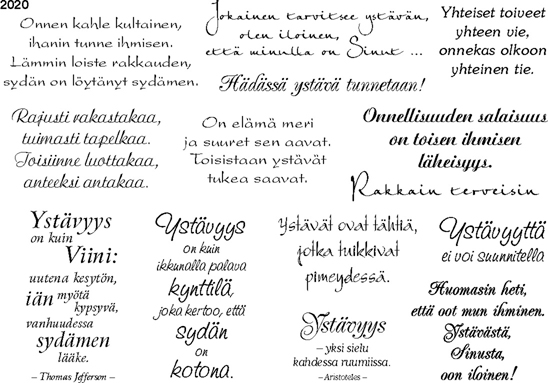 2020
Onnen kahle kultainen,
ihanin tunne ihmisen.
Lämmin loiste rakkauden,
sydän on löytänyt sydämen.
Jokainen tarvitsee ystävän,
olen iloinen,
että minulla on Sinut ...
Hädässä ystävä tunnetaan!
Yhteiset toiveet
yhteen vie,
onnekas olkoon
yhteinen tie.
Rajusti rakastakaa,
tuimasti tapelkaa.
Toisiinne luottakaa,
anteeksi antakaa.
On elämä meri
ja suuret sen aavat.
Toisistaan ystävät
tukea saavat.
Onnellisuuden salaisuus
on toisen ihmisen
läheisyys.
Rakkain terveisin
Ystävyys
on kuin
Viini:
uutena kesytön,
iän myötä
kypsyvä,
vanhuudessa
sydämen
lääke.
– Thomas Jefferson –
Ystävyys
on kuin
ikkunalla palava
kynttilä,
joka kertoo, että
sydän
on
kotona.
Ystävät ovat tähtiä,
jotka tuikkivat
pimeydessä.
Ystävyys
– yksi sielu
kahdessa ruumiissa.
– Aristoteles –
Ystävyyttä
ei voi suunnitella
Huomasin heti,
että oot mun ihminen.
Ystävästä,
Sinusta,
oon iloinen!